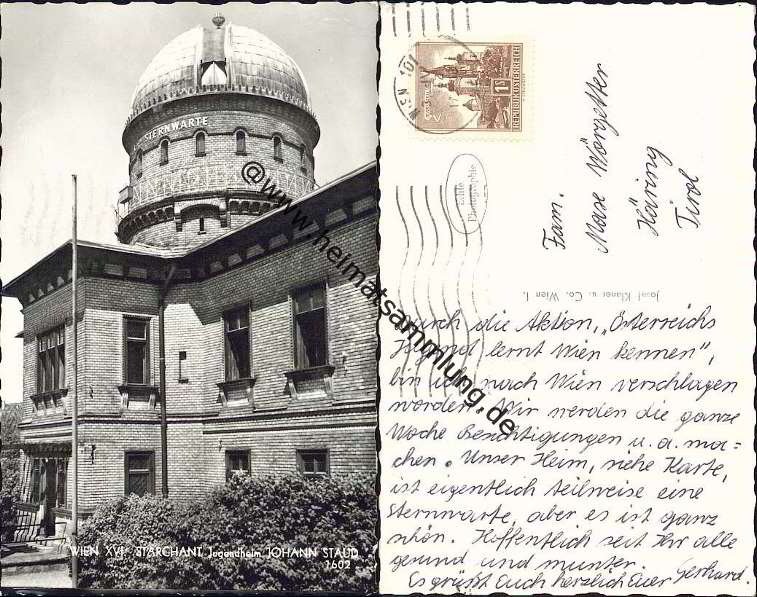 STERNWARTE
WIEN XVI. STARCHANT, Jugendheim JOHANN STAUD
1602
@www.heimatsammlung.de
WIEN 101
REPUBLIK ÖSTERREICH
Echte
Photographie
Fam.
Max Wörgetter
Häring
Tirol
Josef Klaner u. Co. Wien I.
Durch die Aktion, „Österreichs
Jugend lernt Wien kennen",
bin ich nach Wien verschlagen
worden. Wir werden die ganze
Woche Besichtigungen u. a. ma=
chen. Unser Heim, siehe Karte,
ist eigentlich teilweise eine
Sternwarte, aber es ist ganz
schön. Hoffentlich seit Ihr alle
gesund und munter.
Es grüßt Euch herzlich Euer Gerhard.